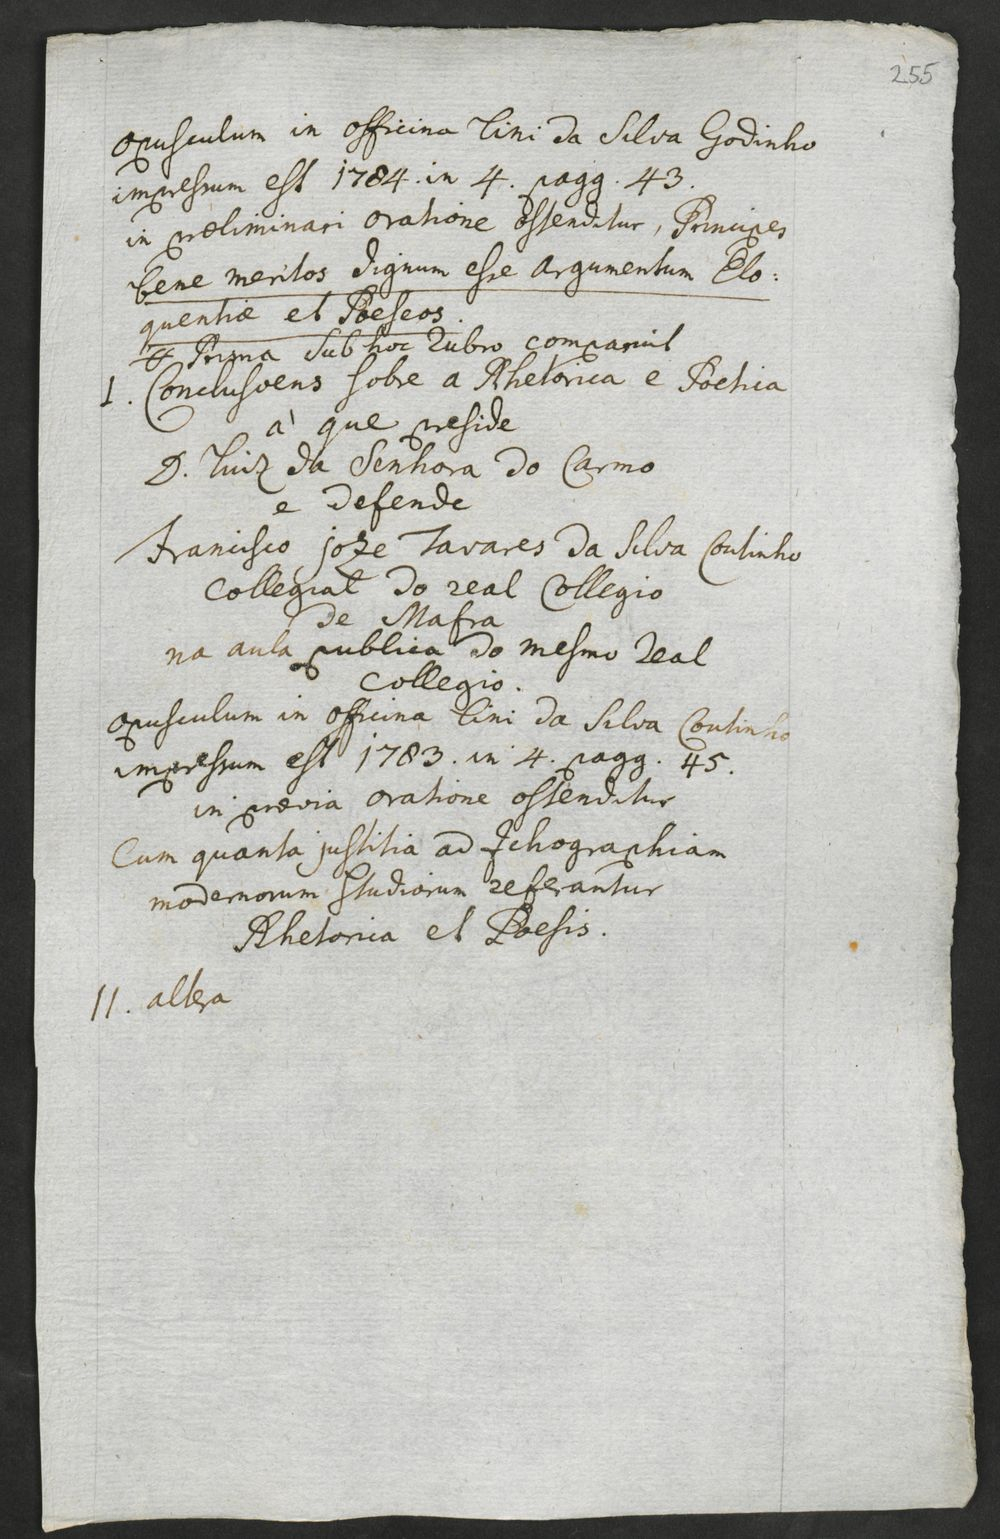 255
opusculum in officina Lini da Silva Godinho
impressum est 1784. in 4. pagg. 43.
in præliminari oratione ostenditur, Principes
bene meritos dignum esse argumentum Elo:
quentiæ et Poeseos.
Prima sub hoc rubro comparuit
I. Conclusoens sobre a Rhetorica e Poetica
a' que preside
D. Luiz da Senhora do Carmo
e defende
Francisco joze Tavares da Silva Coutinho
Collegial do real Collegio
de Mafra
na aula publica do mesmo real
Collegio.
opusculum in officina Lini da Silva Coutinho
impressum est 1783. in 4. pagg. 45.
in prævia oratione ostenditur
Cum quanta justitia ad Ichographiam
modernorum studiorum referantur
Rhetorica et Poesis.
II. altera